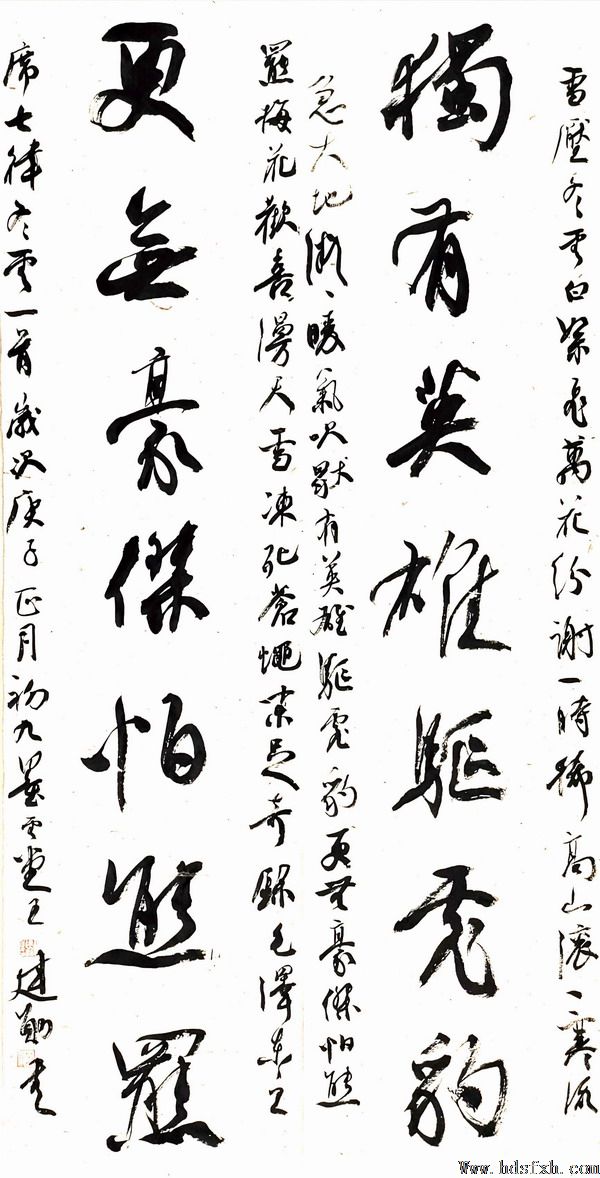 雪壓冬雲白絮飛萬花紛謝一時稀高山滾々寒流
獨有英雄驅虎豹
急大地微々暖氣吹獨有英雄驅虎豹更無豪傑怕熊
羆梅花歡喜漫天雪凍死蒼蠅未足奇錄毛澤東主
更無豪傑怕熊羆
席七律冬雲一首歲次庚子正月初九墨雲堂主建勛書
Www.hdsfxh.com